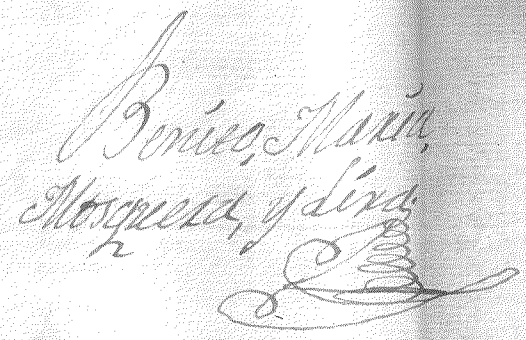 Benito, Maria,
Mosquera, y Lira